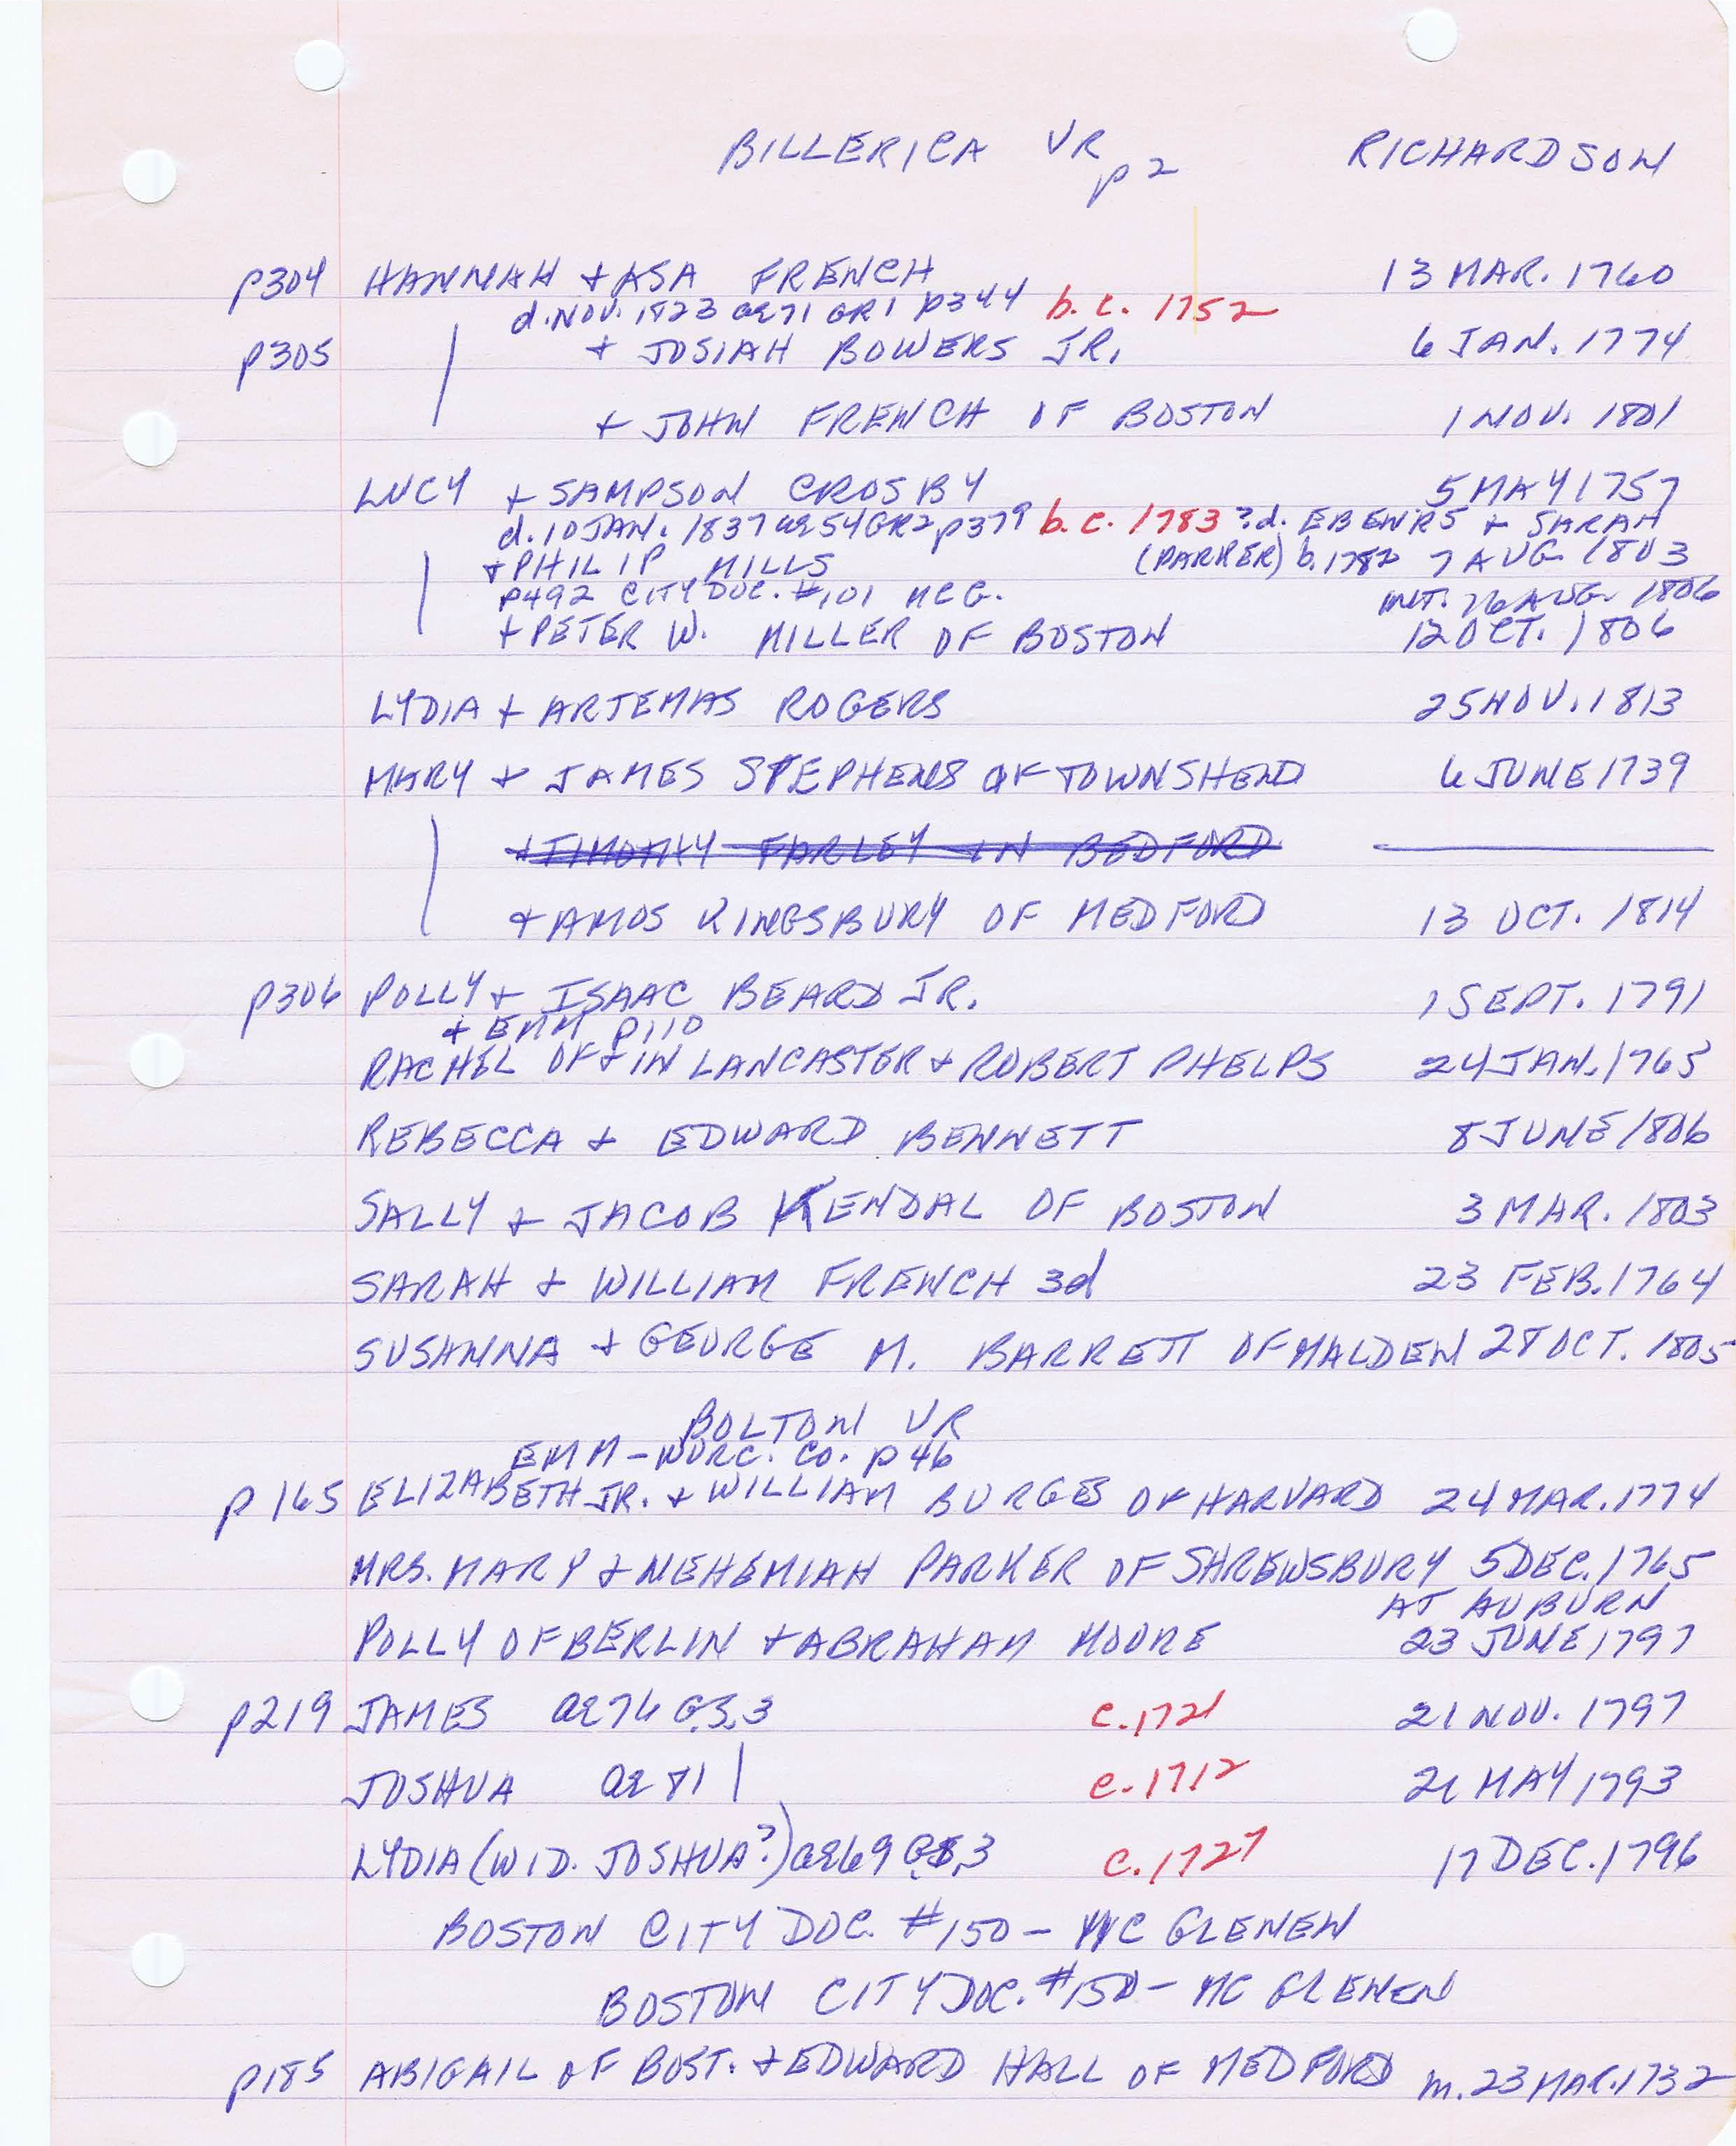 BILLERICA VR p2 RICHARDSON
p304 HANNAH + ASA FRENCH 13 MAR. 1760
d. NOV. 1823 ae71 GR1 p344 b. c. 1752
p305 + JOSIAH BOWERS JR. 6 JAN. 1774
+ JOHN FRENCH OF BOSTON 1 NOV. 1801
LUCY + SAMPSON CROSBY 5 MAY 1757
d. 10 JAN. 1837 ae54 GR2 p379 b. c. 1783 ?d. EBENR5 + SARAH
+ PHILIP MILLS (PARKER) b. 1782 7 AUG. 1803
p492 CITY DOC. #101 MCG. INT. 26 AUG. 1806
+ PETER W. MILLER OF BOSTON 12 OCT. 1806
LYDIA + ARTEMAS ROGERS 25 NOV. 1813
MARY + JAMES STEPHENS OF TOWNSHEND 6 JUNE 1739
+ TIMOTHY FARLEY IN BEDFORD
+ AMOS KINGSBURY OF MEDFORD 13 OCT. 1814
p306 POLLY + ISAAC BEARD JR. 1 SEPT. 1791
+ EMM p110
RACHEL OF + IN LANCASTER + ROBERT PHELPS 24 JAN. 1765
REBECCA + EDWARD BENNETT 8 JUNE 1806
SALLY + JACOB KENDAL OF BOSTON 3 MAR. 1803
SARAH + WILLIAM FRENCH 3d 23 FEB. 1764
SUSANNA + GEORGE M. BARRETT OF MALDEN 28 OCT. 1805
BOLTON VR
EMM - WORC. CO. p46
p165 ELIZABETH JR. + WILLIAM BURGES OF HARVARD 24 MAR. 1774
MRS. MARY + NEHEMIAH PARKER OF SHREWSBURY 5 DEC. 1765
AT AUBURN
POLLY OF BERLIN + ABRAHAM MOORE 23 JUNE 1797
p219 JAMES ae76 G.S.3 c. 1721 21 NOV. 1797
JOSHUA ae81 | c. 1712 21 MAY 1793
LYDIA (WID. JOSHUA?) ae69 G.S.3 c. 1727 17 DEC. 1796
BOSTON CITY DOC. #150 - MC GLENEN
BOSTON CITY DOC. #150 - MC GLENEN
p185 ABIGAIL OF BOST. + EDWARD HALL OF MEDFORD m. 23 MAR. 1732